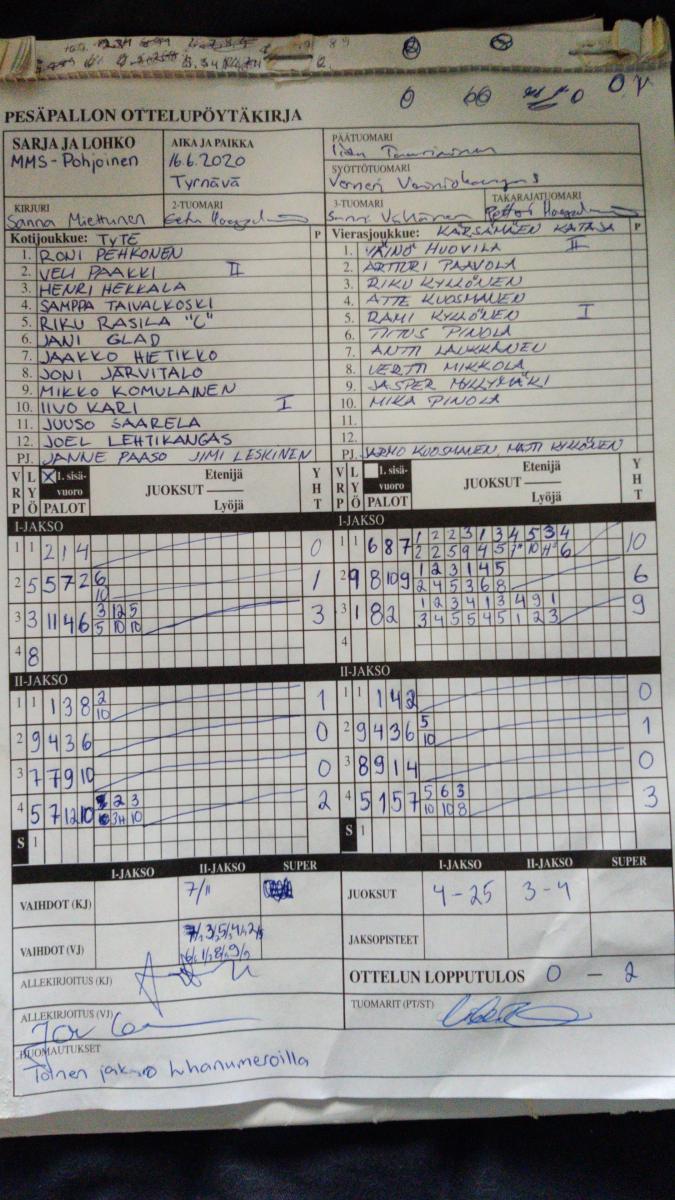 PESÄPALLON OTTELUPÖYTÄKIRJA
SARJA JA LOHKO
MMS-Pohjoinen
AIKA JA PAIKKA
16.6.2020
Tyrnävä
PÄÄTUOMARI
SYÖTTÖTUOMARI
Verneri
KIRJURI
Sanna Miettunen
2-TUOMARI
Eetu
3-TUOMARI
TAKARAJATUOMARI
Petteri
Kotijoukkue: TyTE P
1. RONI PEHKONEN
2. VELI PAAKKI II
3. HENRI HEKKALA
4. SAMPPA TAIVALKOSKI
5. RIKU RASILA "C"
6. JANI GLAD
7. JAAKKO HIETIKKO
8. JONI JÄRVITALO
9. MIKKO KOMULAINEN
10. IIVO KARI I
11. JUUSO SAARELA
12. JOEL LEHTIKANGAS
PJ. JANNE PAASO JIMI LESKINEN
Vierasjoukkue: KÄRSÄMÄEN KATAJA P
1. VÄINÖ HUOVILA II
2. ARTTURI PAAVOLA
3. RIKU KYLLÖNEN
4. ATTE KUOSMANEN
5. RAMI KYLLÖNEN I
6. TITUS PINOLA
7. ANTTI LAUKKANEN
8. VERTTI MIKKOLA
9. JASPER MYLLYMÄKI
10. MIKA PINOLA
11.
12.
PJ. JARMO KUOSMANEN, MATTI KYLLÖNEN
VRP LYÖ 1. sisävuoro PALOT Etenijä JUOKSUT Lyöjä YHT
VRP LYÖ 1. sisävuoro PALOT Etenijä JUOKSUT Lyöjä YHT
I-JAKSO
1 1 2 1 4 0
2 5 5 7 2 6 1
10
3 3 11 4 6 3 12 5 3
5 10 10
4 8
I-JAKSO
1 1 6 8 7 1 2 2 3 1 3 4 5 3 4 10
2 2 5 9 4 5 7 10 6
2 9 8 10 9 1 2 3 1 4 5 6
2 4 5 3 6 8
3 1 8 2 1 2 3 4 1 3 4 9 1 9
3 4 5 5 4 5 1 2 3
4
II-JAKSO
1 1 1 3 8 2 1
10
2 9 4 3 6 0
3 7 7 9 10 0
4 5 7 12 10 2 3 2
3 10
S 1
II-JAKSO
1 1 1 4 2 0
2 9 4 3 6 5 1
10
3 8 9 1 4 0
4 5 1 5 7 5 6 3 3
10 10 8
S 1
I-JAKSO II-JAKSO SUPER
VAIHDOT (KJ) 7/11
VAIHDOT (VJ)
ALLEKIRJOITUS (KJ)
ALLEKIRJOITUS (VJ)
I-JAKSO II-JAKSO SUPER
JUOKSUT 4-25 3-4
JAKSOPISTEET
OTTELUN LOPPUTULOS 0 - 2
TUOMARIT (PT/ST)
HUOMAUTUKSET
Toinen jakso luhanumeroilla